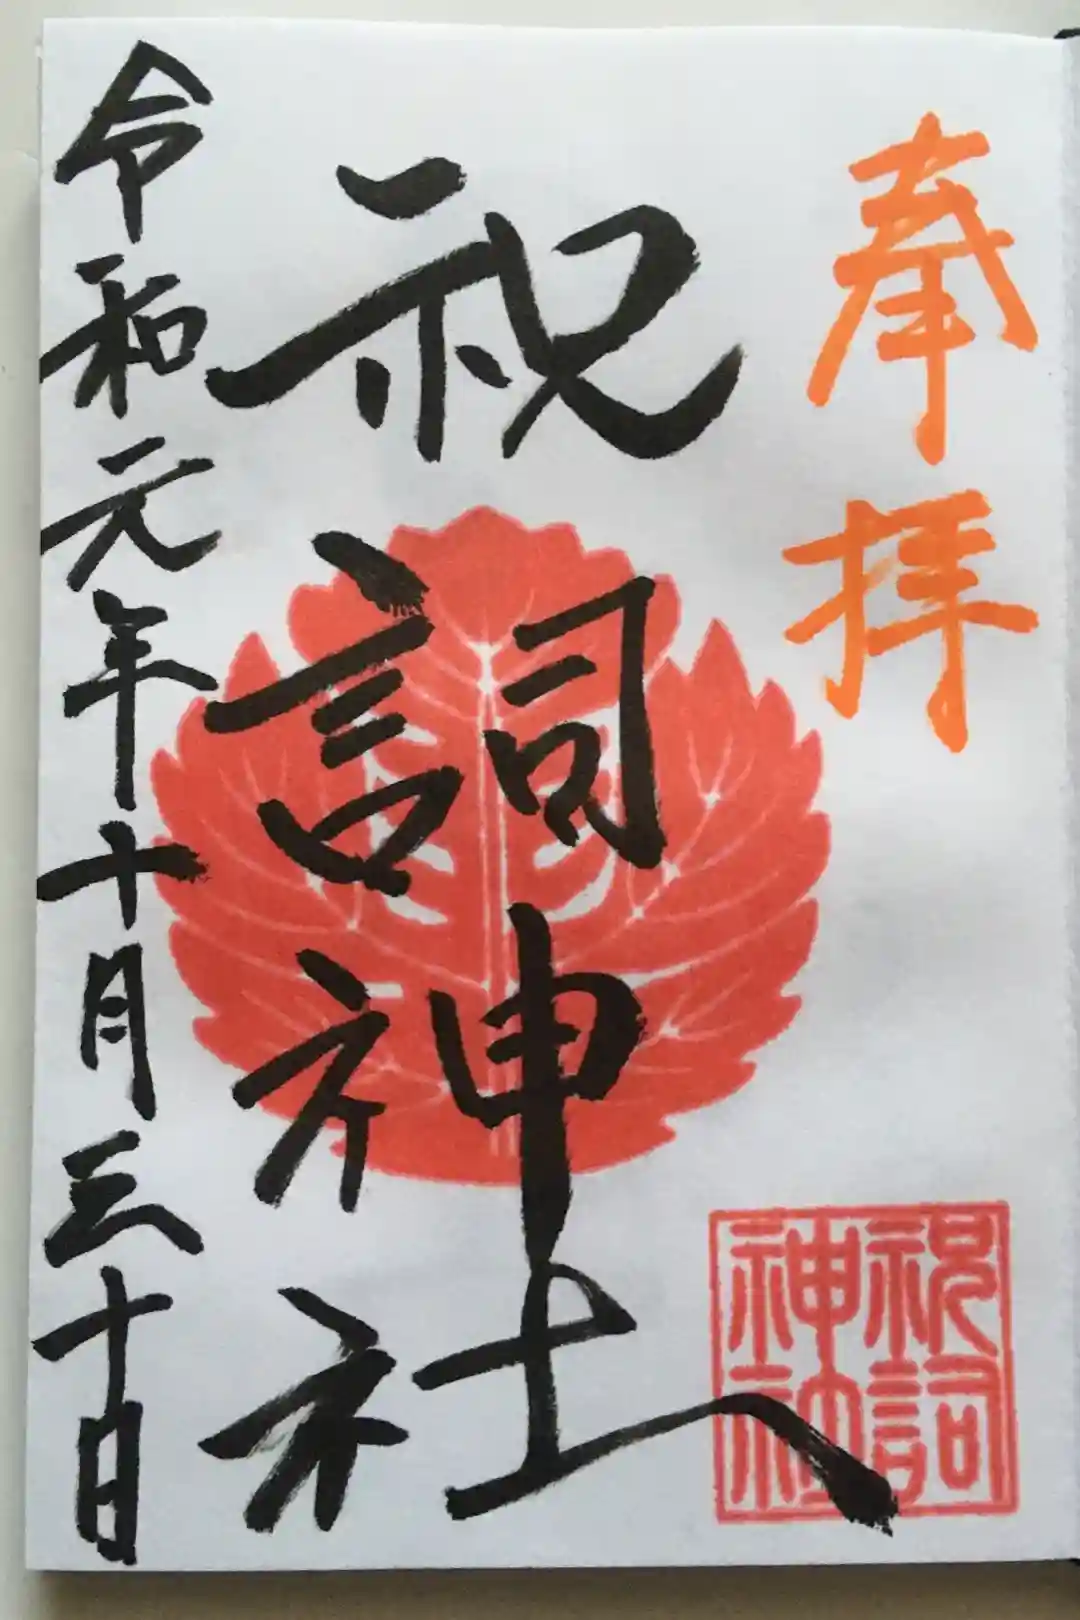 奉拝
祝詞神社
令和元年十月三十日
祝詞
神社